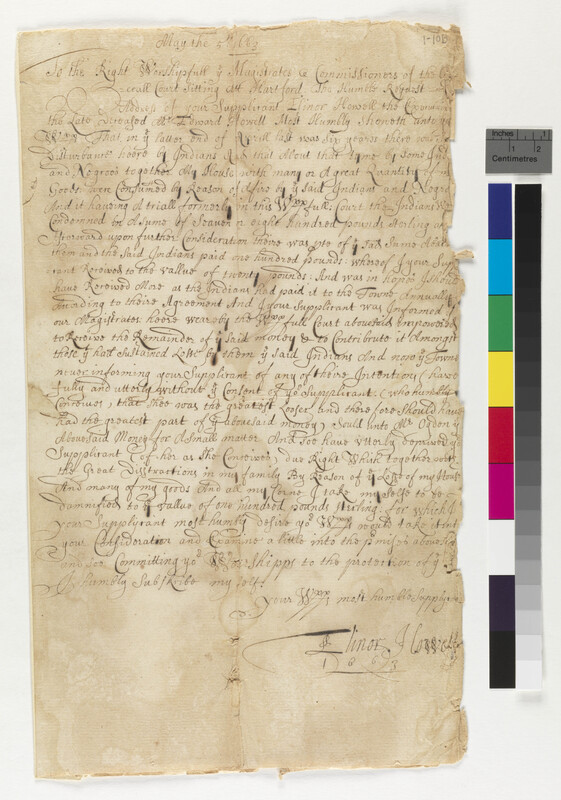 May the 5th 1663
1-10B
To the Right Worshipfull ye Magistrates & Commissioners of the
Court Sitting att Hartford, The Humble Request
of your Supplicant Elinor Howell the
the Late Deceased Mr Edward Howell Most Humbly Sheweth unto
That in ye latter end of Aprill last was six yeares there
Disturbance heere by Indians And that About that tyme by some
and Negroes together My House with many or A great Quantity of
Goods weere Consumed by Reason of A fire by ye said Indians and
And it having A triall formerly in this Wpfull Court the Indians
Condemned in A sume of Seaven or eight hundred pounds sterling
Afterward upon further Consideration there was
them and the Said Indians paid one hundred pounds: whereof I your
Received to the vallue of twenty pounds: And was in hopes I should
have Received More as the Indians had paid it to the Towne Annually
According to theire Agreement And I your Supplicant was Informed
our Magistrates heere weare by the Wpfull Court abovesaid impowered
to Receive the Remainder of ye said money & to Contribute it Amongst
those yt had Sustained Losse by them ye said Indians And now ye Towne
never informing your Supplicant of any of theire Intentions have
fully and utterly without ye Consent of yo Supplicant, (who humbly
Conceives, that shee was the greatest Looser and therefore should have
had the greatest part of ye abovesaid money) sould unto Mr Ogden ye
Abovesaid Money for A small matter And soe have Utterly deprived
Supplicant (of her as she Conceives) due Right Which together with
the Great Distractions in my family By Reason of ye Losse of my House
And many of my goods And all my Corne I take my selfe to be
damnified to ye vallue of one hundred pounds sterling, for which I
your Supplycant most humbly desire yor Wpps would take it into
your Consideration and Examine a little into the
and soe Committing yor Worshipps to the protection of ye
I humbly Subscribe my selfe
your Wpps most humble
Elinor Howell
1663
Inches 1 2
Centimetres